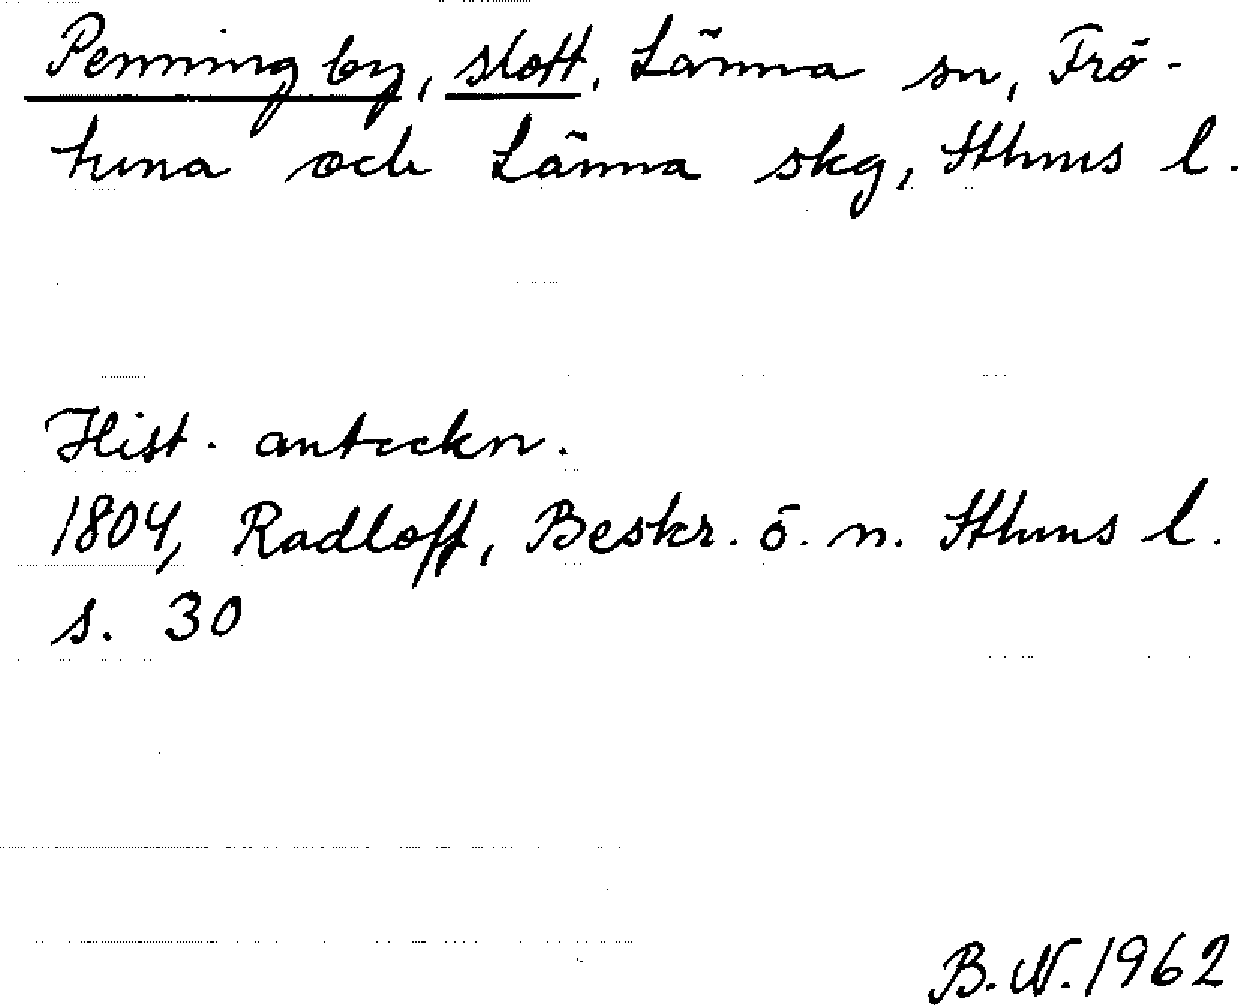 Penningby, slott, Länna sn, Frö-
tuna och Länna skg, Sthms l.
Hist. anteckn.
1804, Radloff, Beskr. ö. n. Sthms l.
s. 30
B.N. 1962